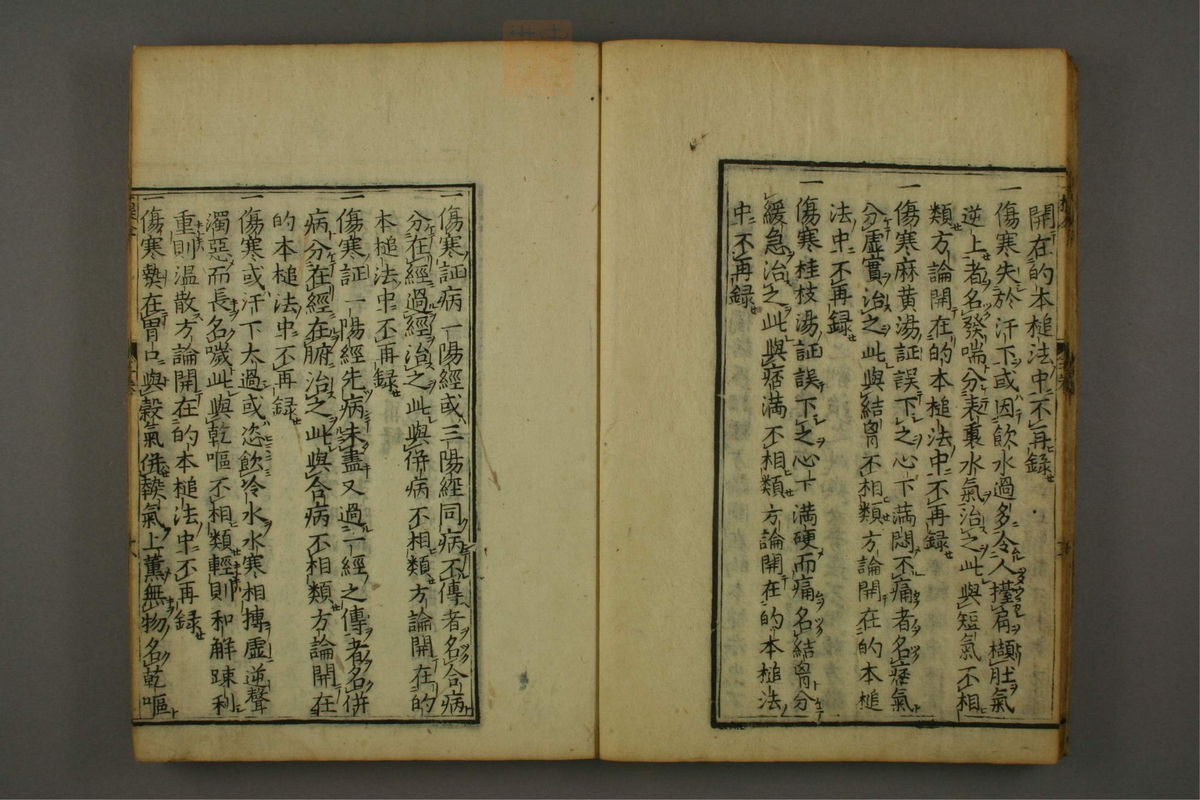 開在的本槌法中不再録
一傷寒失於汗下或因飲水過多令人擡肩擷肚氣
逆上者名發喘分表裏水氣治之此與短氣不相
類方論開在的本槌法中不再録
一傷寒麻黄湯証誤下之心下満悶不痛者名痞氣
分虚實治之此與結胷不相類方論開在的本槌
法中不再録
一傷寒桂枝湯証誤下之心下満硬而痛名結胷分
緩急治之此與痞満不相類方論開在的本槌法
中不再録
一傷寒証病一陽經或三陽經同病不傳者名合病
分在經過經治之此與併病不相類方論開在的
本槌法中不再録
一傷寒証一陽經先病未盡又過一經之傳者名併
病分在經在腑治之此與合病不相類方論開在
的本槌法中不再録
一傷寒或汗下太過或恣飲冷水水寒相摶虚逆聲
濁惡而長名噦此與乾嘔不相類輕則和解踈利
重則温散方論開在的本槌法中不再録
一傷寒熱在胃口與穀氣併熱氣上薫無物名乾嘔